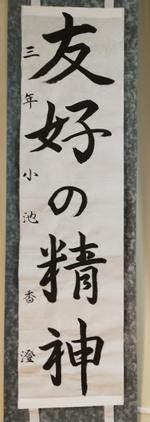 友好の精神
三年小池香澄